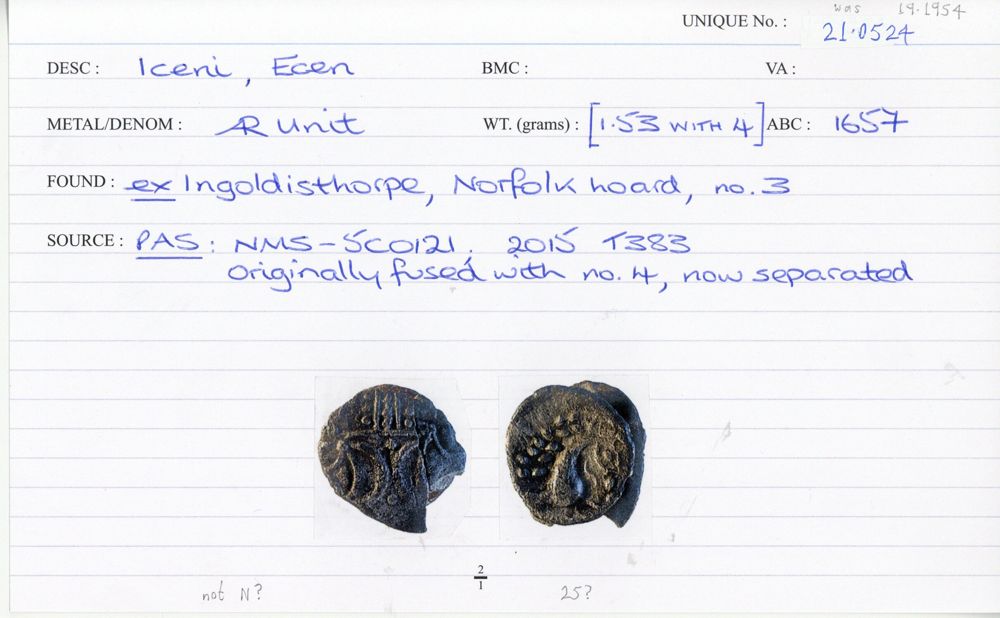 was 19.1954
UNIQUE No. : 21.0524
DESC : Iceni, Ecen BMC : VA :
METAL/DENOM : AR Unit WT. (grams) : [1.53 WITH 4] ABC : 1657
FOUND : ex Ingoldisthorpe, Norfolk hoard, no. 3
SOURCE : PAS: NMS-5C0121, 2015 T383
originally fused with no. 4, now separated
2
1
not N? 25?